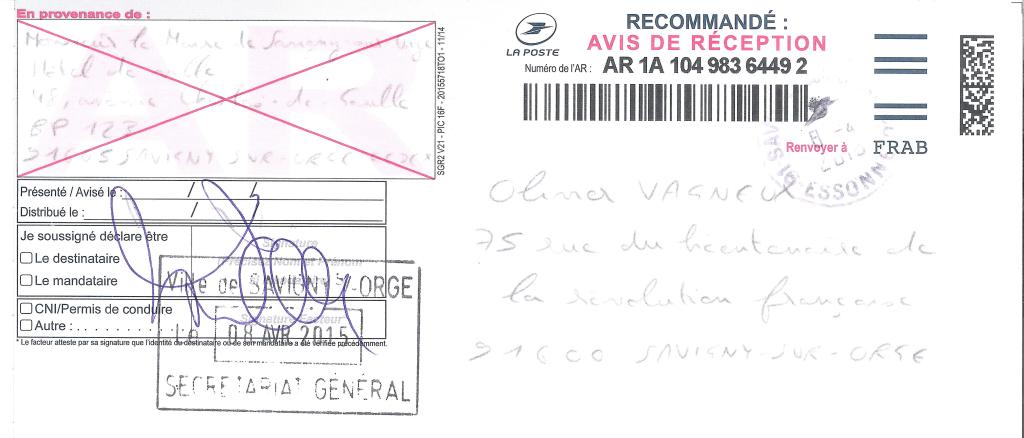 En provenance de :
Monsieur le Maire de Savigny sur Orge
Hôtel de ville
48, avenue Charles de Gaulle
BP 123
91605 SAVIGNY SUR ORGE CEDEX
SGR2 V21 - PIC 16F - 20155718TO1 - 11/14
LA POSTE
RECOMMANDÉ :
AVIS DE RÉCEPTION
Numéro de l'AR : AR 1A 104 983 6449 2
Renvoyer à FRAB
ESSONNE
Olivier VAGNEUX
75 rue du bicentenaire de
la révolution française
91600 SAVIGNY-SUR-ORGE
Présenté / Avisé le : / /
Distribué le : / /
Je soussigné déclare être
Le destinataire
Le mandataire
CNI/Permis de conduire
Autre : . . . . . . . . . .
Signature
Précisez Nom et Prénom
Signature Facteur
* Le facteur atteste par sa signature que l'identité du destinataire ou de son mandataire a été vérifiée précédemment.
Ville de SAVIGNY S/-ORGE
Le 08 AVR. 2015
SECRETARIAT GÉNÉRAL